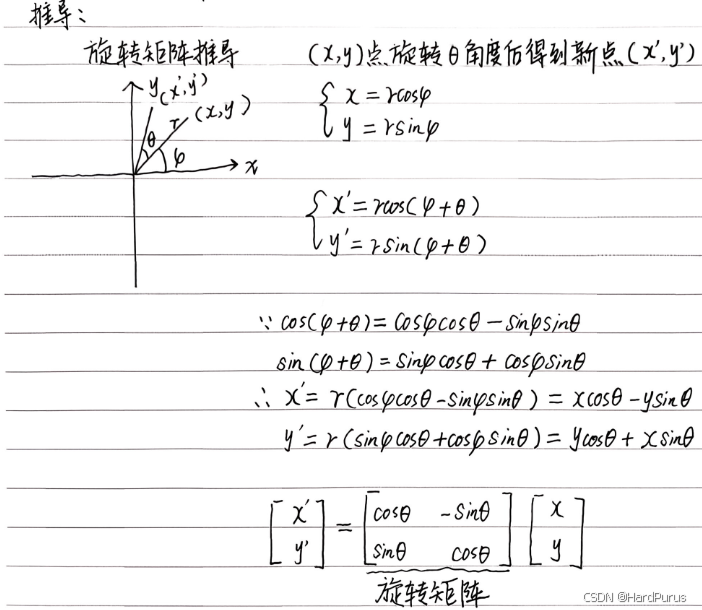 推导：
旋转矩阵推导
(x,y)点旋转θ角度后得到新点(x',y')
y
(x',y')
r
(x,y)
θ
φ
x
{ x = rcosφ
y = rsinφ
{ x' = rcos(φ+θ)
y' = rsin(φ+θ)
∵ cos(φ+θ) = cosφcosθ - sinφsinθ
sin(φ+θ) = sinφcosθ + cosφsinθ
∴ x' = r(cosφcosθ - sinφsinθ) = xcosθ - ysinθ
y' = r(sinφcosθ + cosφsinθ) = ycosθ + xsinθ
[x'] = [cosθ -sinθ] [x]
[y'] [sinθ cosθ] [y]
旋转矩阵
CSDN @HardPurus